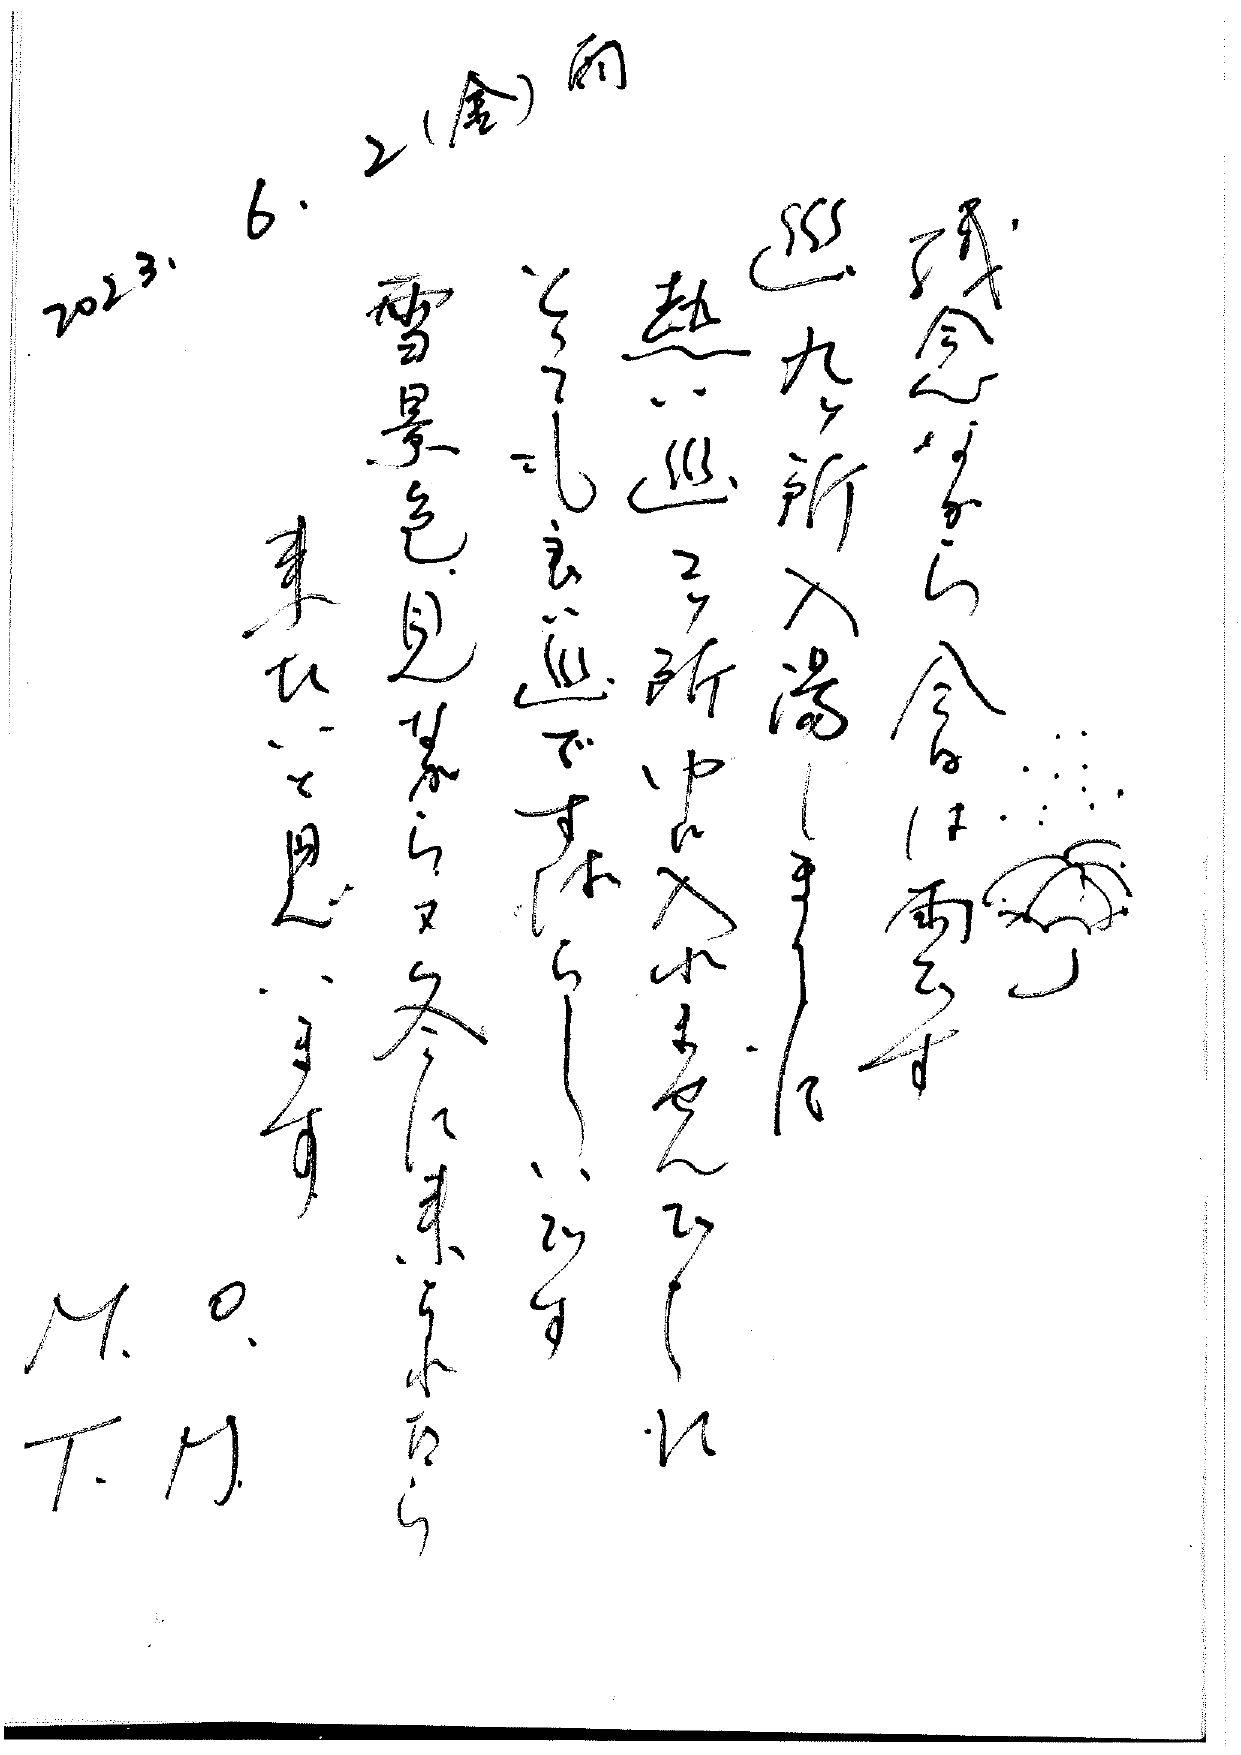 2023. 6. 2(金)雨
残念ながら今日は雨です
巡九ヶ所入湯しました
熱い巡二ヶ所中に入れませんでした
とっても良い巡ですばらしいです
雪景色見ながら又冬に来られたら
来たいと思います
M. O.
T. M.